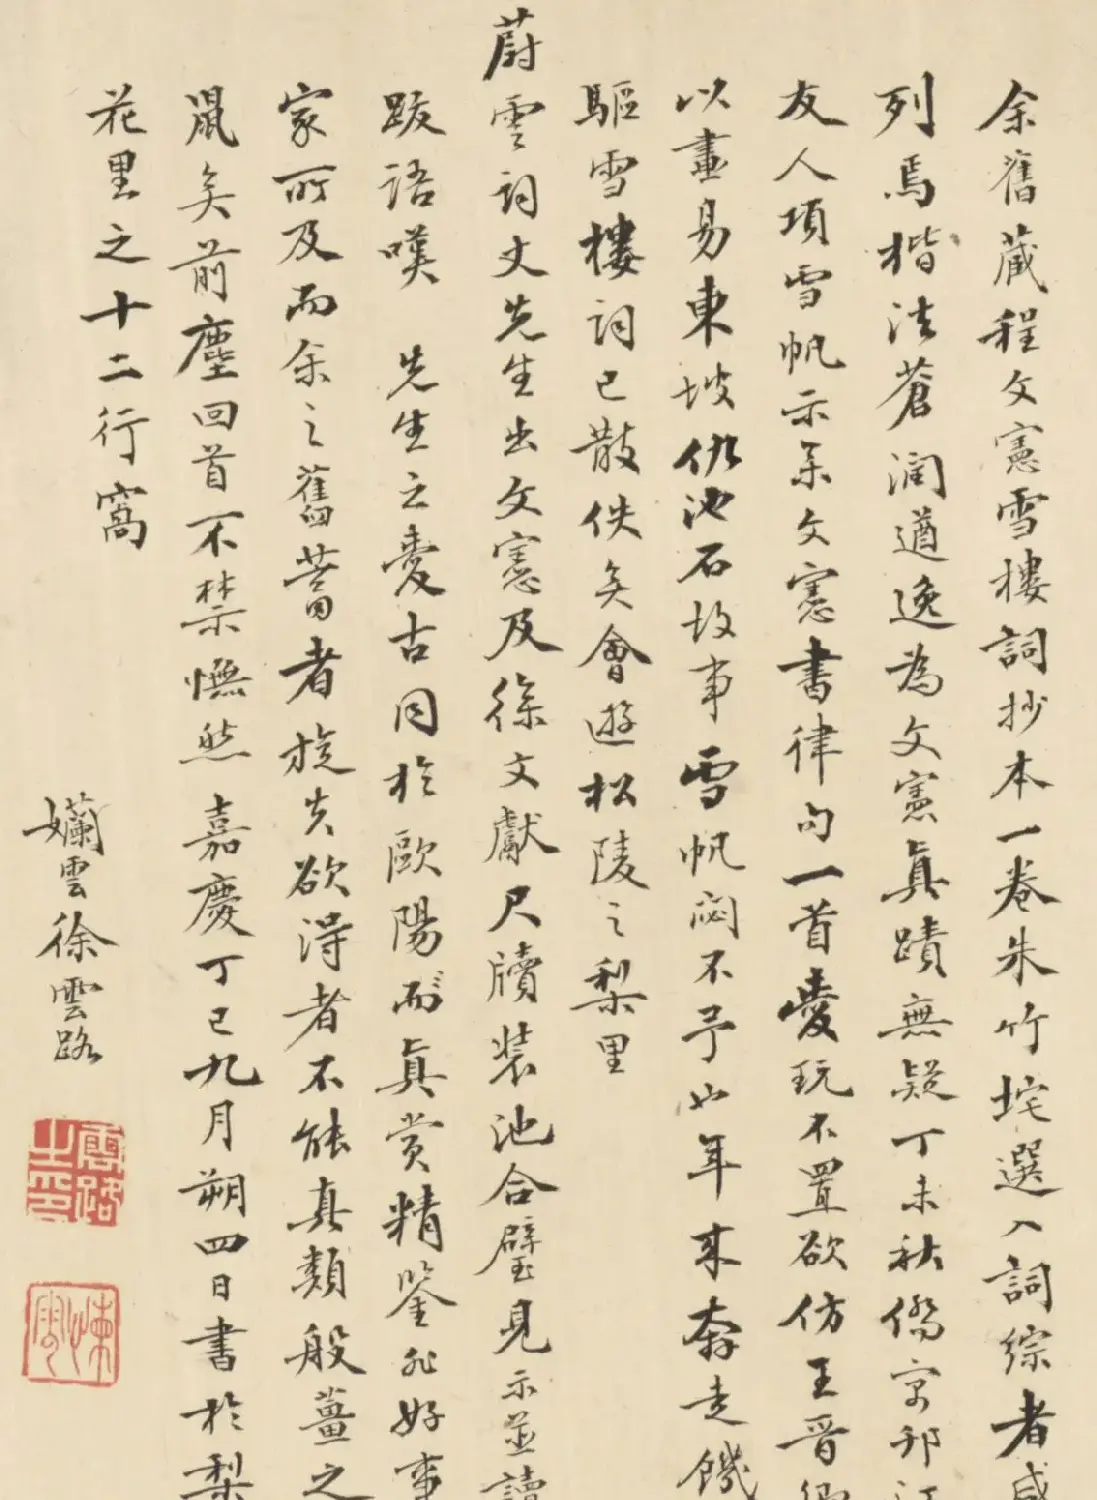 余舊藏程文憲雪樓詞抄本一卷朱竹垞選入詞綜者咸
列焉楷法蒼潤遒逸為文憲真蹟無疑丁未秋僑寓邗江
友人項雪帆示余文憲書律句一首愛玩不置欲仿王晉卿
以畫易東坡仇池石故事雪帆閟不予也年來奔走饑
驅雪樓詞已散佚矣會遊松陵之梨里
蔚雲詞丈先生出文憲及徐文獻尺牘裝池合璧見示並讀
跋語嘆 先生之愛古同於歐陽而真賞精鑒非好事
家所及而余之舊蓄者旋失欲得者不能真類般薑之
鼠矣前塵回首不禁憮然 嘉慶丁巳九月朔四日書於梨
花里之十二行窩
嬾雲徐雲路
雲路之印